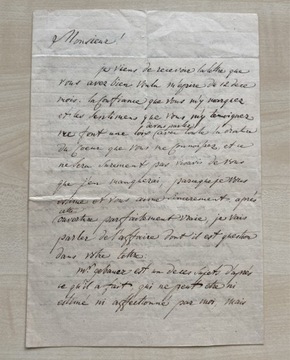 Monsieur!
je viens de recevoir la lettre que
vous avez bien voulu m'ecrire de 12 de ce
mois. la confiance que vous m'y marquez
et les sentimens que vous m'y temoignez
me font une loi
du que vous me et ce
ne sera surement pas vis-à-vis de vous
que j'en manquerai, puisque je vous
estime et vous aime sincerement, après
cette
ouverture parfaitement vraie, je vais
parler de l'affaire dont il est question
dans votre lettre.
Mr. est un de ces sujets d'après
ce qu'il a fait, qui ne peut etre ni
estimé ni affectionné par moi, mais